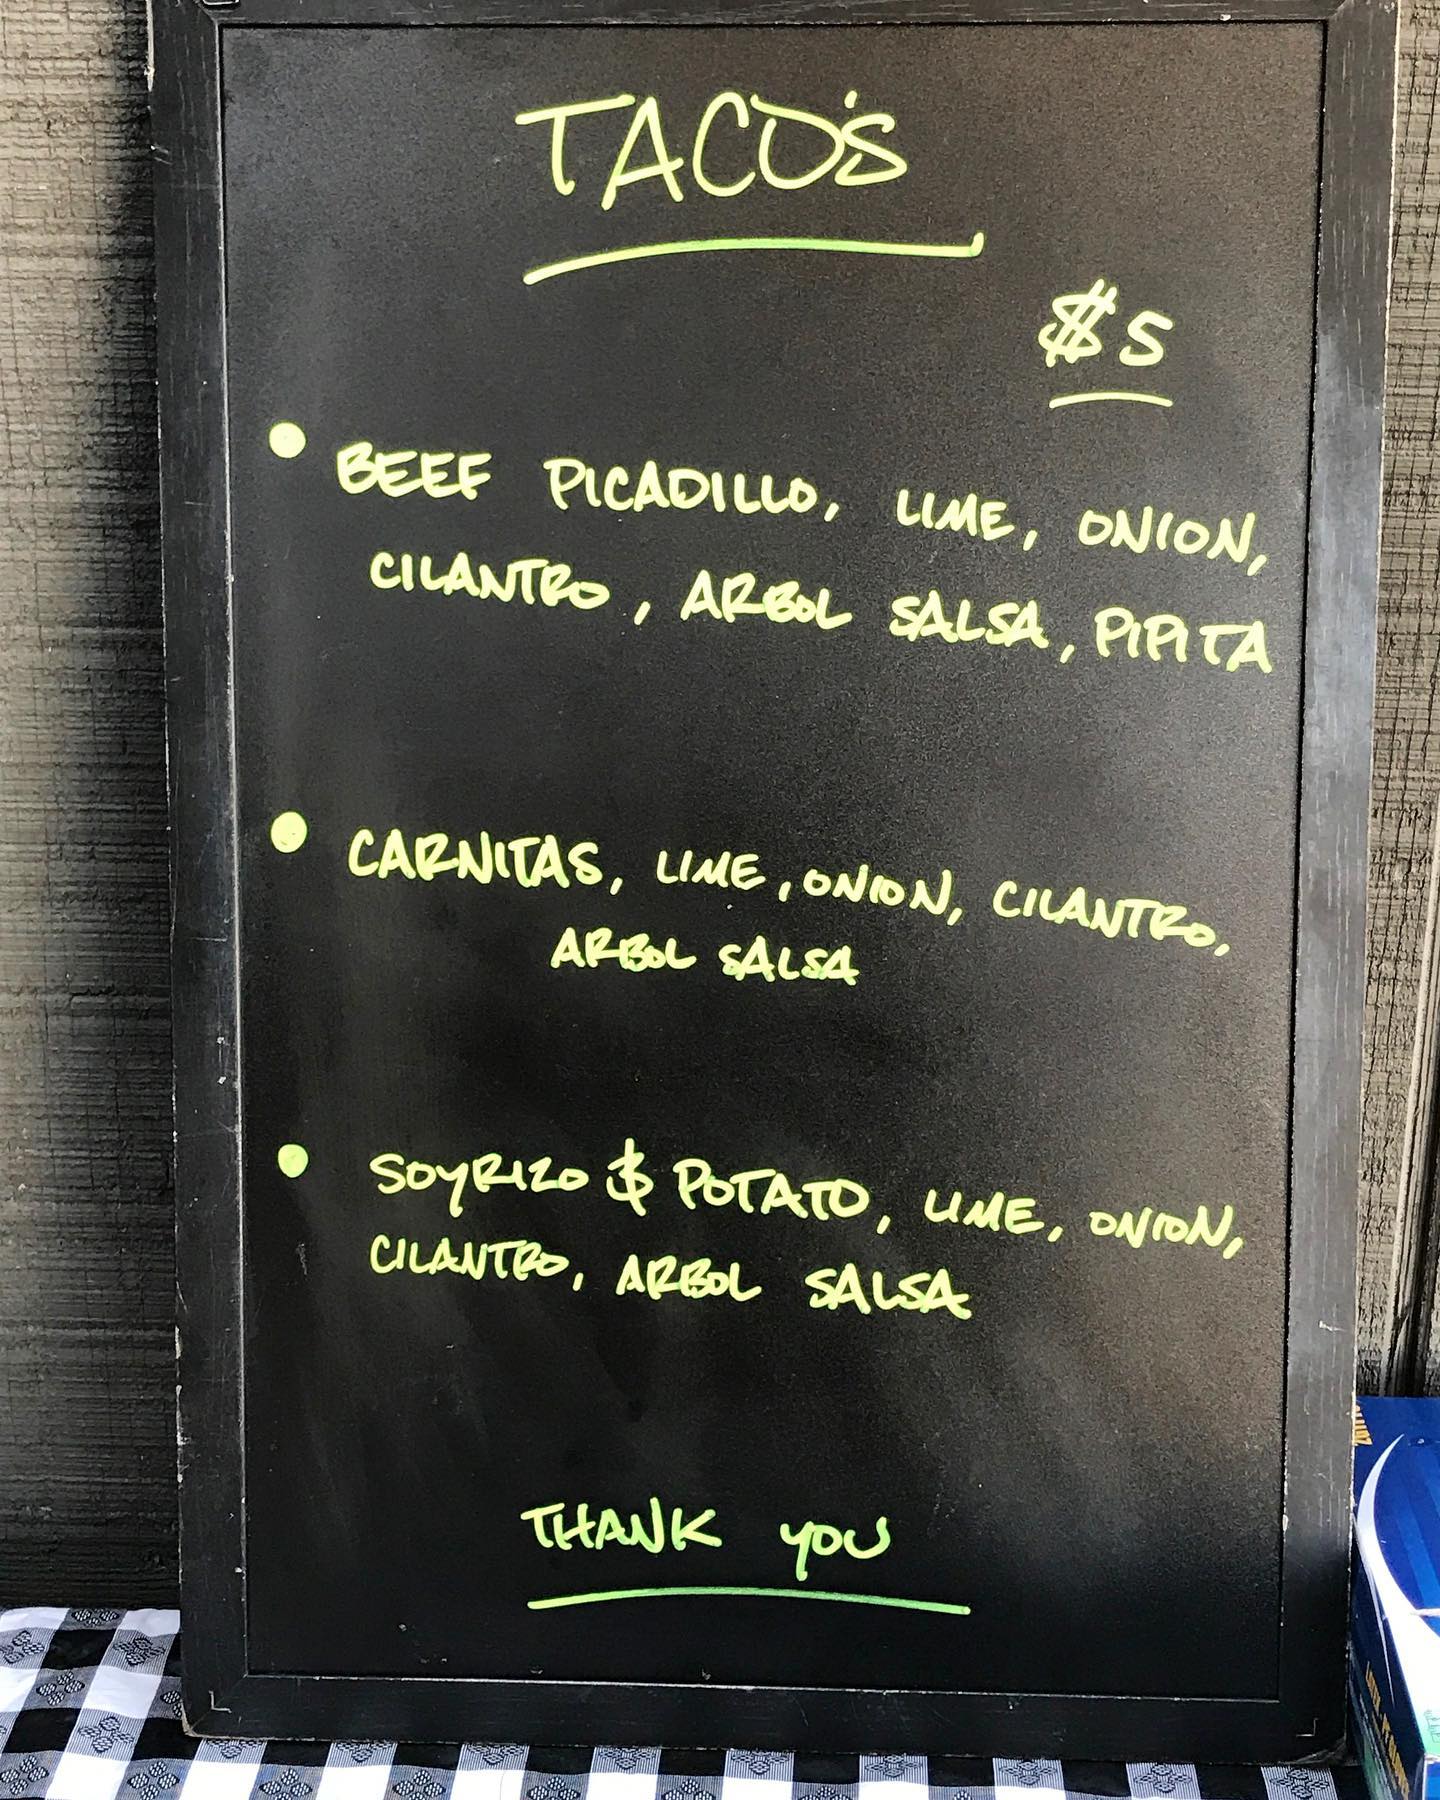 TACO'S
$5
• BEEF PICADILLO, LIME, ONION,
CILANTRO, ARBOL SALSA, PIPITA
• CARNITAS, LIME, ONION, CILANTRO,
ARBOL SALSA
• SOYRIZO & POTATO, LIME, ONION,
CILANTRO, ARBOL SALSA
THANK YOU